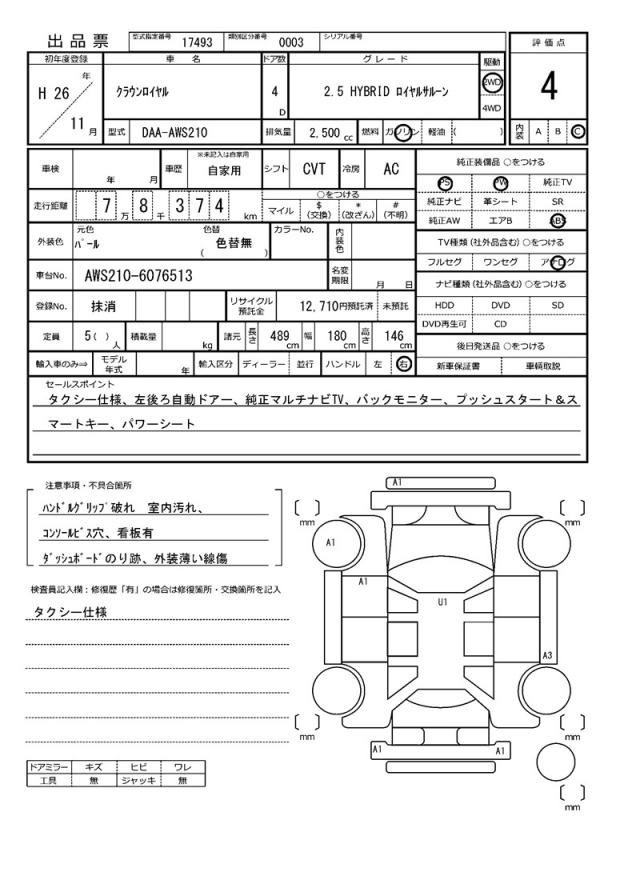 出品票 型式指定番号 17493 類別区分番号 0003 シリアル番号
評価点
4
内装 A B C
初年度登録 車名 ドア数 グレード 駆動
H 26 年 11 月 クラウンロイヤル 4 D 2.5 HYBRID ロイヤルサルーン 2WD
4WD
型式 DAA-AWS210 排気量 2,500 cc 燃料 ガソリン 軽油 ( )
車検 年 月 車歴 ※未記入は自家用 自家用 シフト CVT 冷房 AC
走行距離 7 万 8 千 3 7 4 km ○をつける
マイル $(交換) *(改ざん) #(不明)
外装色 元色 パール 色替 ( 色替無 ) カラーNo. 内装色
車台No. AWS210-6076513 名変期限 月 日
登録No. 抹消 リサイクル預託金 12,710円預託済 未預託
定員 5( )人 積載量 kg 諸元 長さ 489cm 幅 180cm 高さ 146cm
輸入車のみ⇒ モデル年式 年 輸入区分 ディーラー 並行 ハンドル 左 右
純正装備品 ○をつける
PS PW 純正TV
純正ナビ 革シート SR
純正AW エアB ABS
TV種類(社外品含む) ○をつける
フルセグ ワンセグ アナログ
ナビ種類(社外品含む) ○をつける
HDD DVD SD
DVD再生可 CD
後日発送品 ○をつける
新車保証書 車輌取説
セールスポイント
タクシー仕様、左後ろ自動ドアー、純正マルチナビTV、バックモニター、プッシュスタート&ス
マートキー、パワーシート
注意事項・不具合箇所
ハンドルグリップ破れ 室内汚れ、
コンソールビス穴、看板有
ダッシュボードのり跡、外装薄い線傷
検査員記入欄：修復歴「有」の場合は修復箇所・交換箇所を記入
タクシー仕様
ドアミラー キズ ヒビ ワレ
工具 無 ジャッキ 無
A1
[ ] mm
[ ] mm
A1
A1
U1
A3
[ ] mm
[ ] mm
A1
A1
[ ] mm